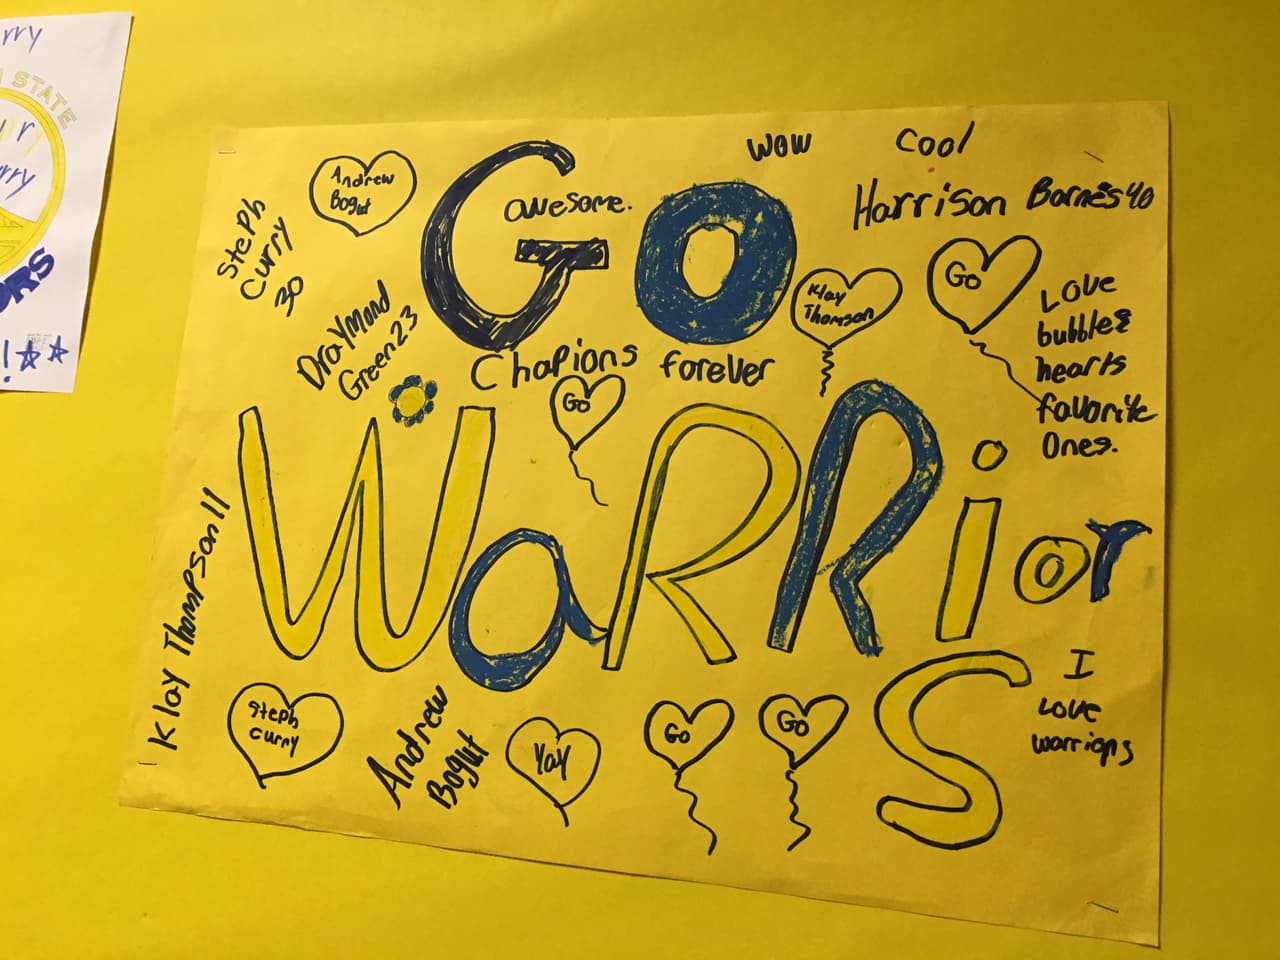 rry
STATE
rry
ORS
!
Andrew
Bogut
Steph
Curry
30
GO
awesome.
wow
cool
Harrison Barnes 40
Go
Klay
Thomson
Love
bubbles
hearts
favorite
Ones.
Draymond
Green 23
Chapions forever
Go
WaRRiorS
Klay Thompson 11
Steph
curry
Andrew
Bogut
Yay
Go
Go
I
Love
warriors